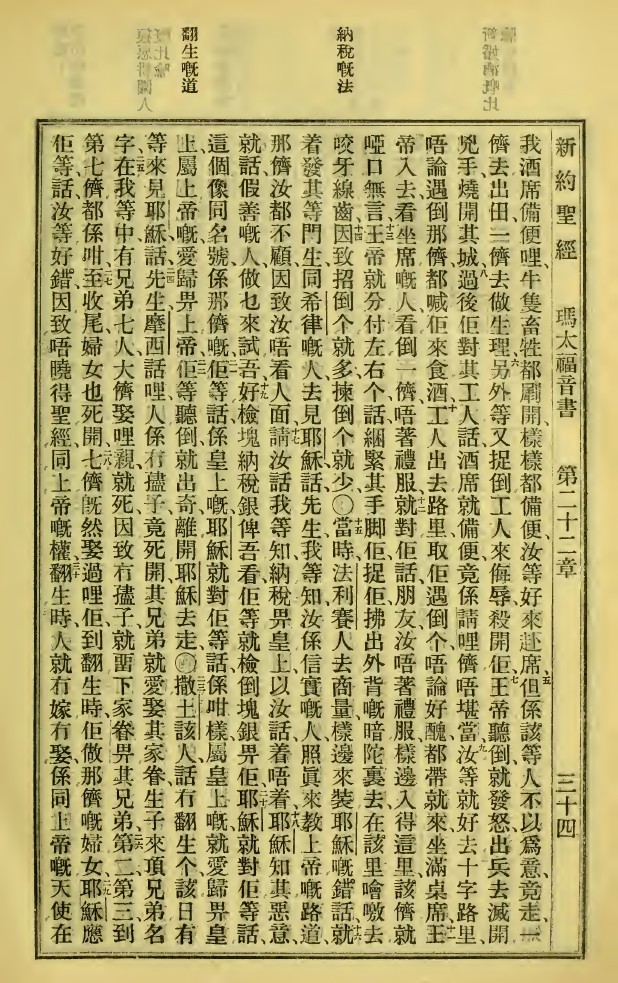 新約聖經 瑪太福音書 第二十二章 三十四
納稅嘅法
翻生嘅道
我酒席備便哩、牛隻畜牲都劏開、樣樣都備便、汝等好來赴席、五但係該等人不以爲意、竟走、一
儕去出田、一儕去做生理、六另外等又捉倒工人來侮辱殺開佢、七王帝聽倒、就發怒出兵去滅開
兇手、燒開其城、八過後佢對其工人話、酒席就備便、竟係請哩儕唔堪當、九汝等就好去十字路里、
唔論遇倒那儕、都喊佢來食酒、十工人出去路里、取佢遇倒个、唔論好醜、都帶就來坐滿桌席、十一王
帝入去看坐席嘅人、看倒一儕唔著禮服、十二就對佢話、朋友、汝唔著禮服、樣邊入得這里、該儕就
啞口無言、十三王帝就分付左右个話、綑緊其手脚、佢捉佢拂出外背嘅暗陀裏去、在該里噲噭去
咬牙線齒、十四因致招倒个就多、揀倒个就少、〇十五當時法利賽人去商量、樣邊來裝耶穌嘅錯話、十六就
着發其等門生、同希律嘅人、去見耶穌話、先生、我等知汝係信實嘅人、照眞來教上帝嘅路道、
那儕汝都不顧、因致汝唔看人面、十七請汝話我等知、納稅畀皇上、以汝話着唔着、十八耶穌知其惡意、
就話、假善嘅人、做乜來試吾、十九好檢塊納稅銀俾吾看、佢等就檢倒塊銀畀佢、二十耶穌就對佢等話、
這個像同名號、係那儕嘅、二一佢等話、係皇上嘅、耶穌就對佢等話、係咁樣、屬皇上嘅、就愛歸畀皇
上、屬上帝嘅、愛歸畀上帝、二二佢等聽倒就出奇、離開耶穌去走、〇二三撒土該人話冇翻生个、該日有
等來見耶穌話、二四先生、摩西話哩、人係冇𧝞子竟死開、其兄弟就愛娶其家眷、生子來頂兄弟名
字、二五在我等中有兄弟七人、大儕娶哩親就死、因致冇𧝞子、就畱下家眷畀其兄弟、二六第二第三到
第七儕都係咁、二七至收尾婦女也死開、二八七儕旣然娶過哩佢、到翻生時、佢做那儕嘅婦女、二九耶穌應
佢等話、汝等好錯、因致唔曉得聖經、同上帝嘅權、三十翻生時、人就冇嫁冇娶、係同上帝嘅天使在